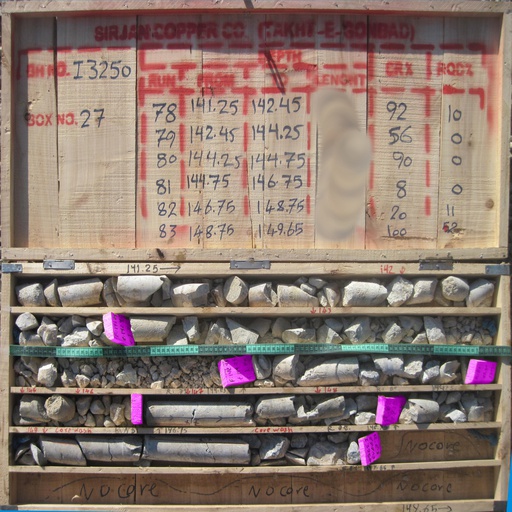 SIRJAN COPPER CO. (TAKHT-E-GONBAD)
DEPTH
BH NO. I3250 RUN FROM TO LENGHT CR% RQD%
BOX NO. 27
78 141.25 142.45 92 10
79 142.45 144.25 56 0
80 144.25 144.75 90 0
81 144.75 146.75 8 0
82 146.75 148.75 20 11
83 148.75 149.65 100
141.25 → 142
No core
No core No core No core